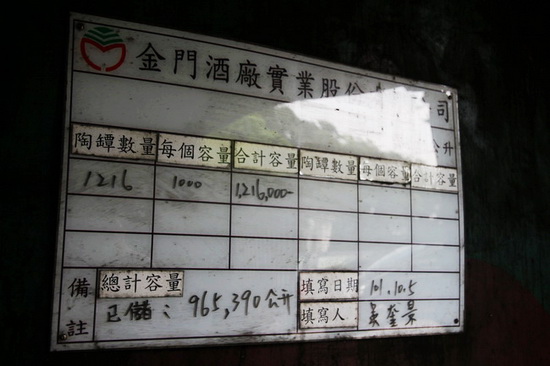 金門酒廠實業股份 司
公升
陶罈數量 每個容量 合計容量 陶罈數量 每個容量 合計容量
1216 1000 1,216,000-
備註 總計容量 填寫日期 101.10.5
已儲: 965,390公升 填寫人